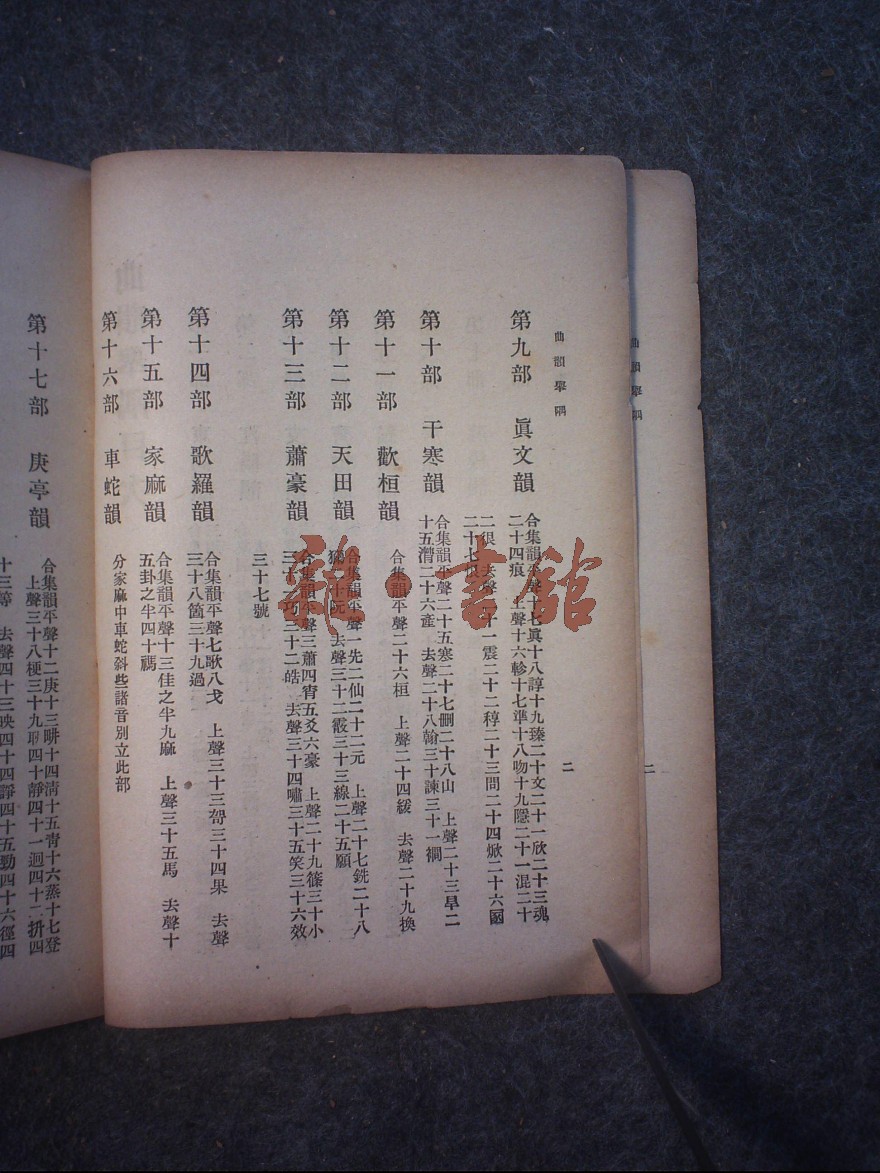 曲韻舉隅
二
第九部　眞文韻
合集韻平聲十七眞十八諄十九臻二十文二十一欣二十三魂
二十四痕　上聲十六軫十七準十八吻十九隱二十一混二十
二很去聲二十一震二十二稕二十三問二十四焮二十六圂
二十七恨
第十部　干寒韻
合集韻平聲二十五寒二十七刪二十八山　上聲二十三旱二
十五潸二十六產　去聲二十八翰三十諫三十一襉
第十一部　歡桓韻
合集韻平聲二十六桓　上聲二十四緩　去聲二十九換
第十二部　天田韻
合集韻平聲一先二仙二十二元　上聲二十七銑二十八
獮二十阮　去聲三十二霰三十三線二十五願
第十三部　蕭豪韻
合集韻平聲三蕭四宵五爻六豪　上聲二十九篠三十小
三十一巧三十二皓　去聲三十四嘯三十五笑三十六效
三十七號
第十四部　歌羅韻
合集韻平聲七歌八戈　上聲三十三哿三十四果　去聲
三十八箇三十九過
第十五部　家麻韻
合集韻平聲十三佳之半九麻　上聲三十五馬　去聲十
五卦之半四十禡
第十六部　車蛇韻
分家麻中車蛇斜些諸音別立此部
第十七部　庚亭韻
合集韻平聲十二庚十三耕十四清十五靑十六蒸十七登
上聲三十八梗三十九耿四十靜四十一迥四十二拼四
十三等　去聲四十三映四十四諍四十五勁四十六徑四
曲韻舉隅
二
雜·書館